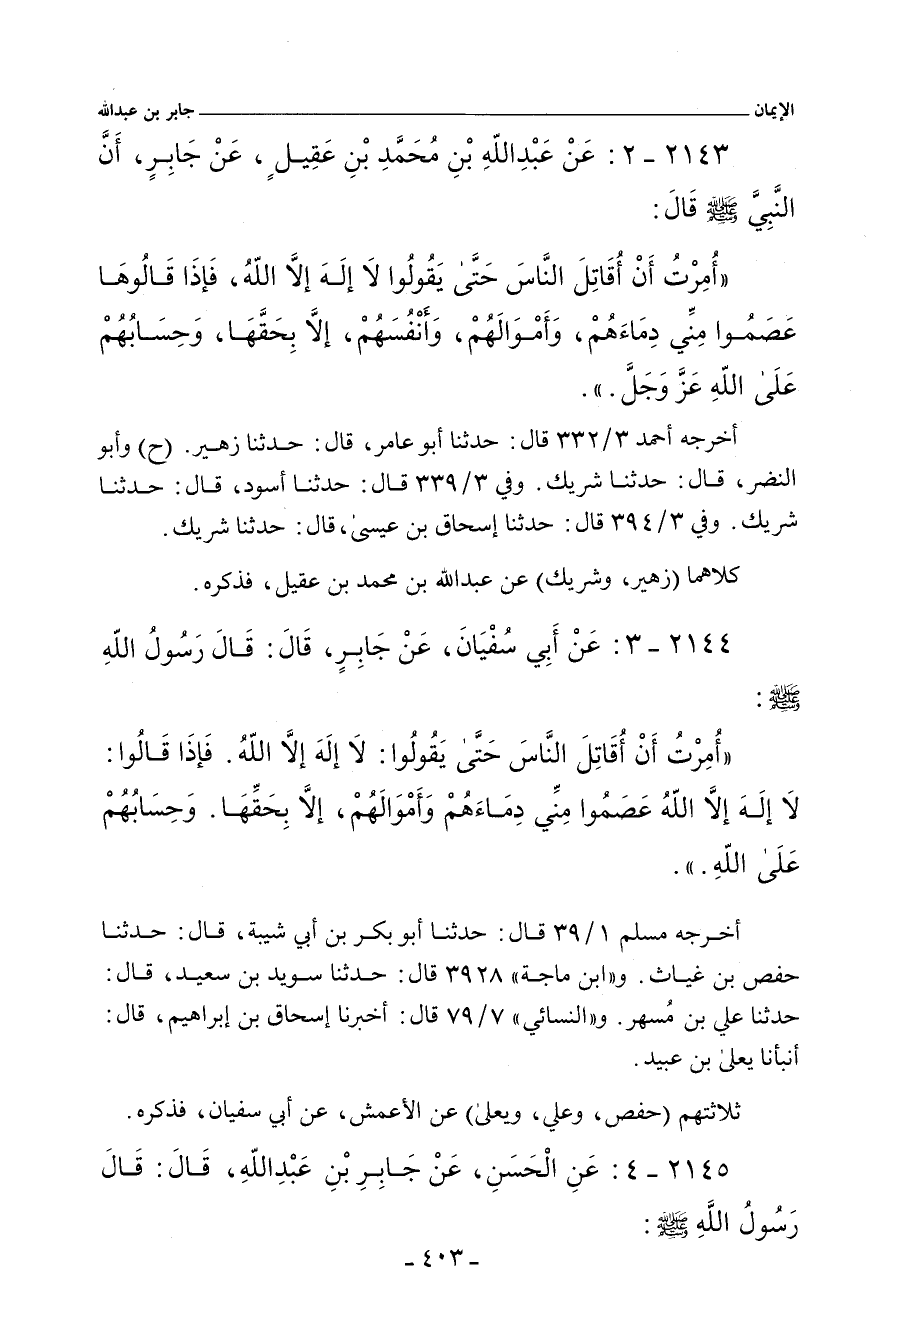 الإيمان جابر بن عبدالله
٢١٤٣ - ٢ : عَنْ عَبْدِاللّهِ بْنِ مُحَمَّدِ بْنِ عَقِيلٍ ، عَنْ جَابِرٍ، أَنَّ
النَّبِيَّ ﷺ قَالَ :
«أُمِرْتُ أَنْ أُقَاتِلَ النَّاسَ حَتَّىٰ يَقُولُوا لَا إِلَهَ إلاَّ اللّهُ، فَإِذَا قَالُوهَا
عَصَمُوا مِنِّي دِمَاءَهُمْ، وَأَمْوَالَهُمْ، وَأَنْفُسَهُمْ، إلاَّ بِحَقَّهَا، وَحِسَابُهُمْ
عَلَىٰ اللّهِ عَزَّ وَجَلَّ . ».
أخرجه أحمد ٣/ ٣٣٢ قال : حدثنا أبو عامر، قال : حدثنا زهير. (ح) وأبو
النضر، قال : حدثنا شريك. وفي ٣/ ٣٣٩ قال : حدثنا أسود، قال : حدثنا
شريك. وفي ٣/ ٣٩٤ قال : حدثنا إسحاق بن عيسىٰ، قال : حدثنا شريك.
كلاهما (زهير، وشريك) عن عبدالله بن محمد بن عقيل، فذكره.
٢١٤٤ - ٣ : عَنْ أَبِي سُفْيَانَ، عَنْ جَابِرٍ، قَالَ : قَالَ رَسُولُ اللّهِ
ﷺ :
«أُمِرْتُ أَنْ أُقَاتِلَ النَّاسَ حَتَّىٰ يَقُولُوا : لَا إِلَهَ إلاَّ اللّهُ. فَإِذَا قَالُوا :
لَا إِلَهَ إلاَّ اللّهُ عَصَمُوا مِنِّي دِمَاءَهُمْ وَأَمْوَالَهُمْ، إلاَّ بِحَقِّهَا. وَحِسَابُهُمْ
عَلَىٰ اللّهِ . ».
أخرجه مسلم ١/ ٣٩ قال : حدثنا أبو بكر بن أبي شيبة، قال : حدثنا
حفص بن غياث. و«ابن ماجة» ٣٩٢٨ قال : حدثنا سويد بن سعيد، قال :
حدثنا علي بن مُسهر. و«النسائي» ٧/ ٧٩ قال : أخبرنا إسحاق بن إبراهيم، قال :
أنبأنا يعلىٰ بن عبيد.
ثلاثتهم (حفص، وعلي، ويعلىٰ) عن الأعمش، عن أبي سفيان، فذكره.
٢١٤٥ - ٤ : عَنِ الْحَسَنِ، عَنْ جَابِرِ بْنِ عَبْدِاللّهِ، قَالَ : قَالَ
رَسُولُ اللَّهِ ﷺ :
- ٤٠٣ -